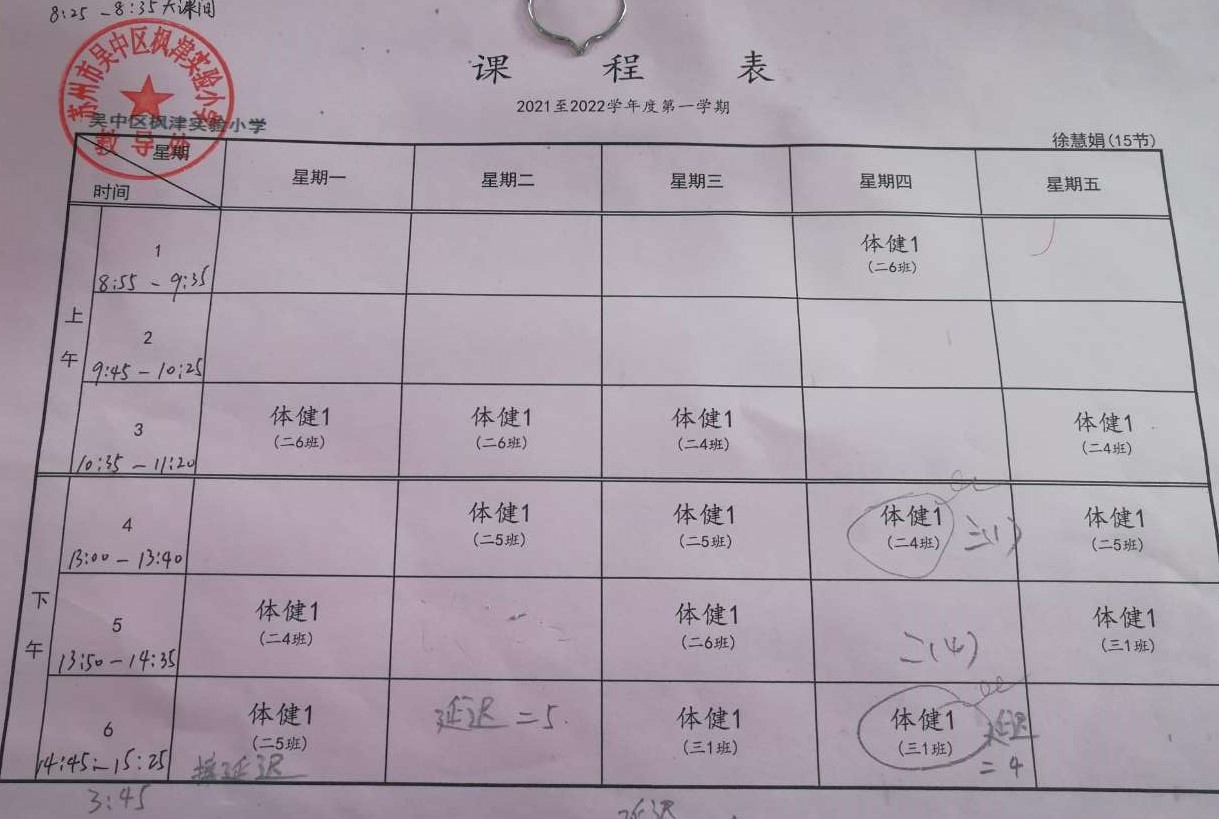 8:25-8:35大课间
课程表
2021至2022学年度第一学期
苏州市吴中区枫津实验小学
教导处
吴中区枫津实验小学
徐慧娟(15节)
星期
时间
星期一 星期二 星期三 星期四 星期五
上午
1
体健1
(二6班)
8:55-9:35
2
9:45-10:25
3
体健1 体健1 体健1 体健1
(二6班) (二6班) (二4班) (二4班)
10:35-11:20
下午
4
体健1 体健1 体健1 体健1
(二5班) (二5班) (二4班) 三(1) (二5班)
13:00-13:40
5
体健1 体健1 体健1
(二4班) (二6班) 二(4) (三1班)
13:50-14:35
6
体健1 延迟二5. 体健1 体健1 延迟
(二5班) (三1班) (三1班) 二4
14:45-15:25 接延迟
3:45
延迟